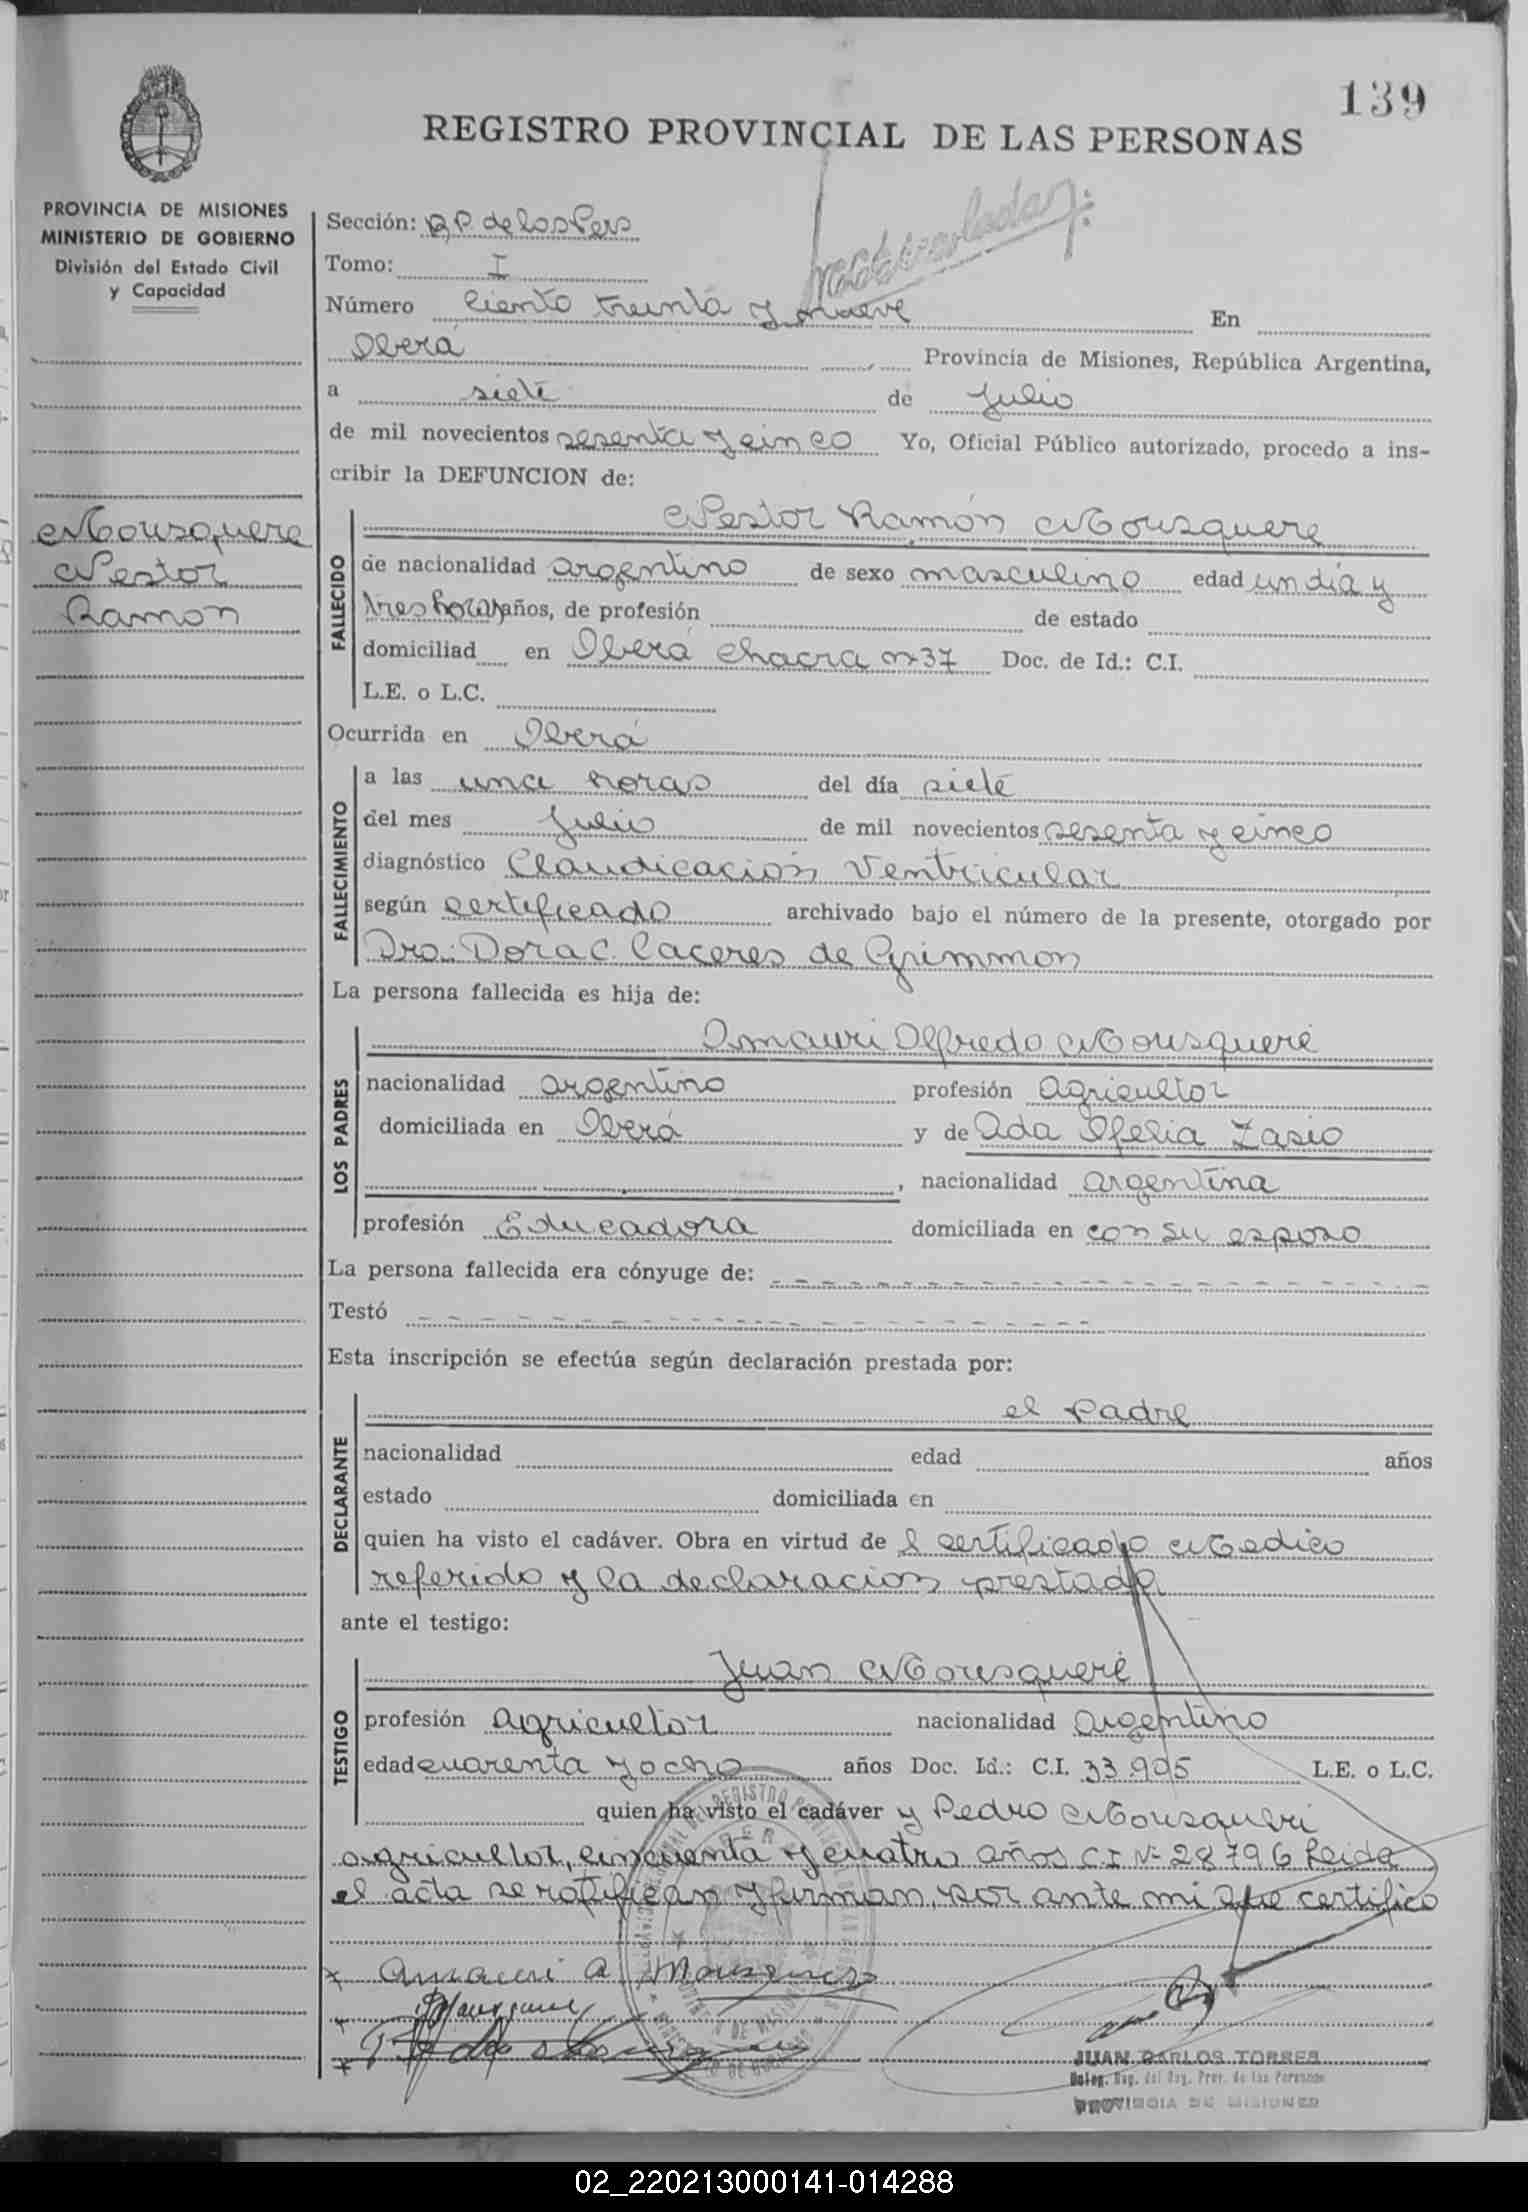 139
REGISTRO PROVINCIAL DE LAS PERSONAS
PROVINCIA DE MISIONES
MINISTERIO DE GOBIERNO
División del Estado Civil
y Capacidad
Mousquere
Nestor
Ramon
Sección: R.P. de los Pers
Tomo: I
Número Ciento treinta y nueve En
Oberá Provincia de Misiones, República Argentina,
a siete de Julio
de mil novecientos sesenta y cinco Yo, Oficial Público autorizado, procedo a ins-
cribir la DEFUNCION de:
FALLECIDO
Nestor Ramón Mousquere
de nacionalidad argentino de sexo masculino edad un día y
tres horas años, de profesión de estado
domiciliad en Oberá chacra nº 37 Doc. de Id.: C.I.
L.E. o L.C.
Ocurrida en Oberá
FALLECIMIENTO
a las una horas del día siete
del mes Julio de mil novecientos sesenta y cinco
diagnóstico Claudicación Ventricular
según certificado archivado bajo el número de la presente, otorgado por
Dra: Dora C. Caceres de Grimmon
La persona fallecida es hija de:
LOS PADRES
Amauri Alfredo Mousqueré
nacionalidad argentino profesión agricultor
domiciliada en Oberá y de Ada Ofelia Zasio
, nacionalidad argentina
profesión Educadora domiciliada en con su esposo
La persona fallecida era cónyuge de:
Testó
Esta inscripción se efectúa según declaración prestada por:
DECLARANTE
el Padre
nacionalidad edad años
estado domiciliada en
quien ha visto el cadáver. Obra en virtud de l certificado Medico
referido y la declaracion prestada
ante el testigo:
TESTIGO
Juan Mousqueré
profesión agricultor nacionalidad argentino
edad cuarenta y ocho años Doc. Id.: C.I. 33.905 L.E. o L.C.
quien ha visto el cadáver y Pedro Mousqueri
agricultor, cincuenta y cuatro años C.I Nº 28796 leida
el acta se ratifican y firman, por ante mi que certifico
Amauri A. Mousquere
JUAN CARLOS TORRES
Deleg. Reg. del Reg. Prov. de las Personas
PROVINCIA DE MISIONES
02_220213000141-014288